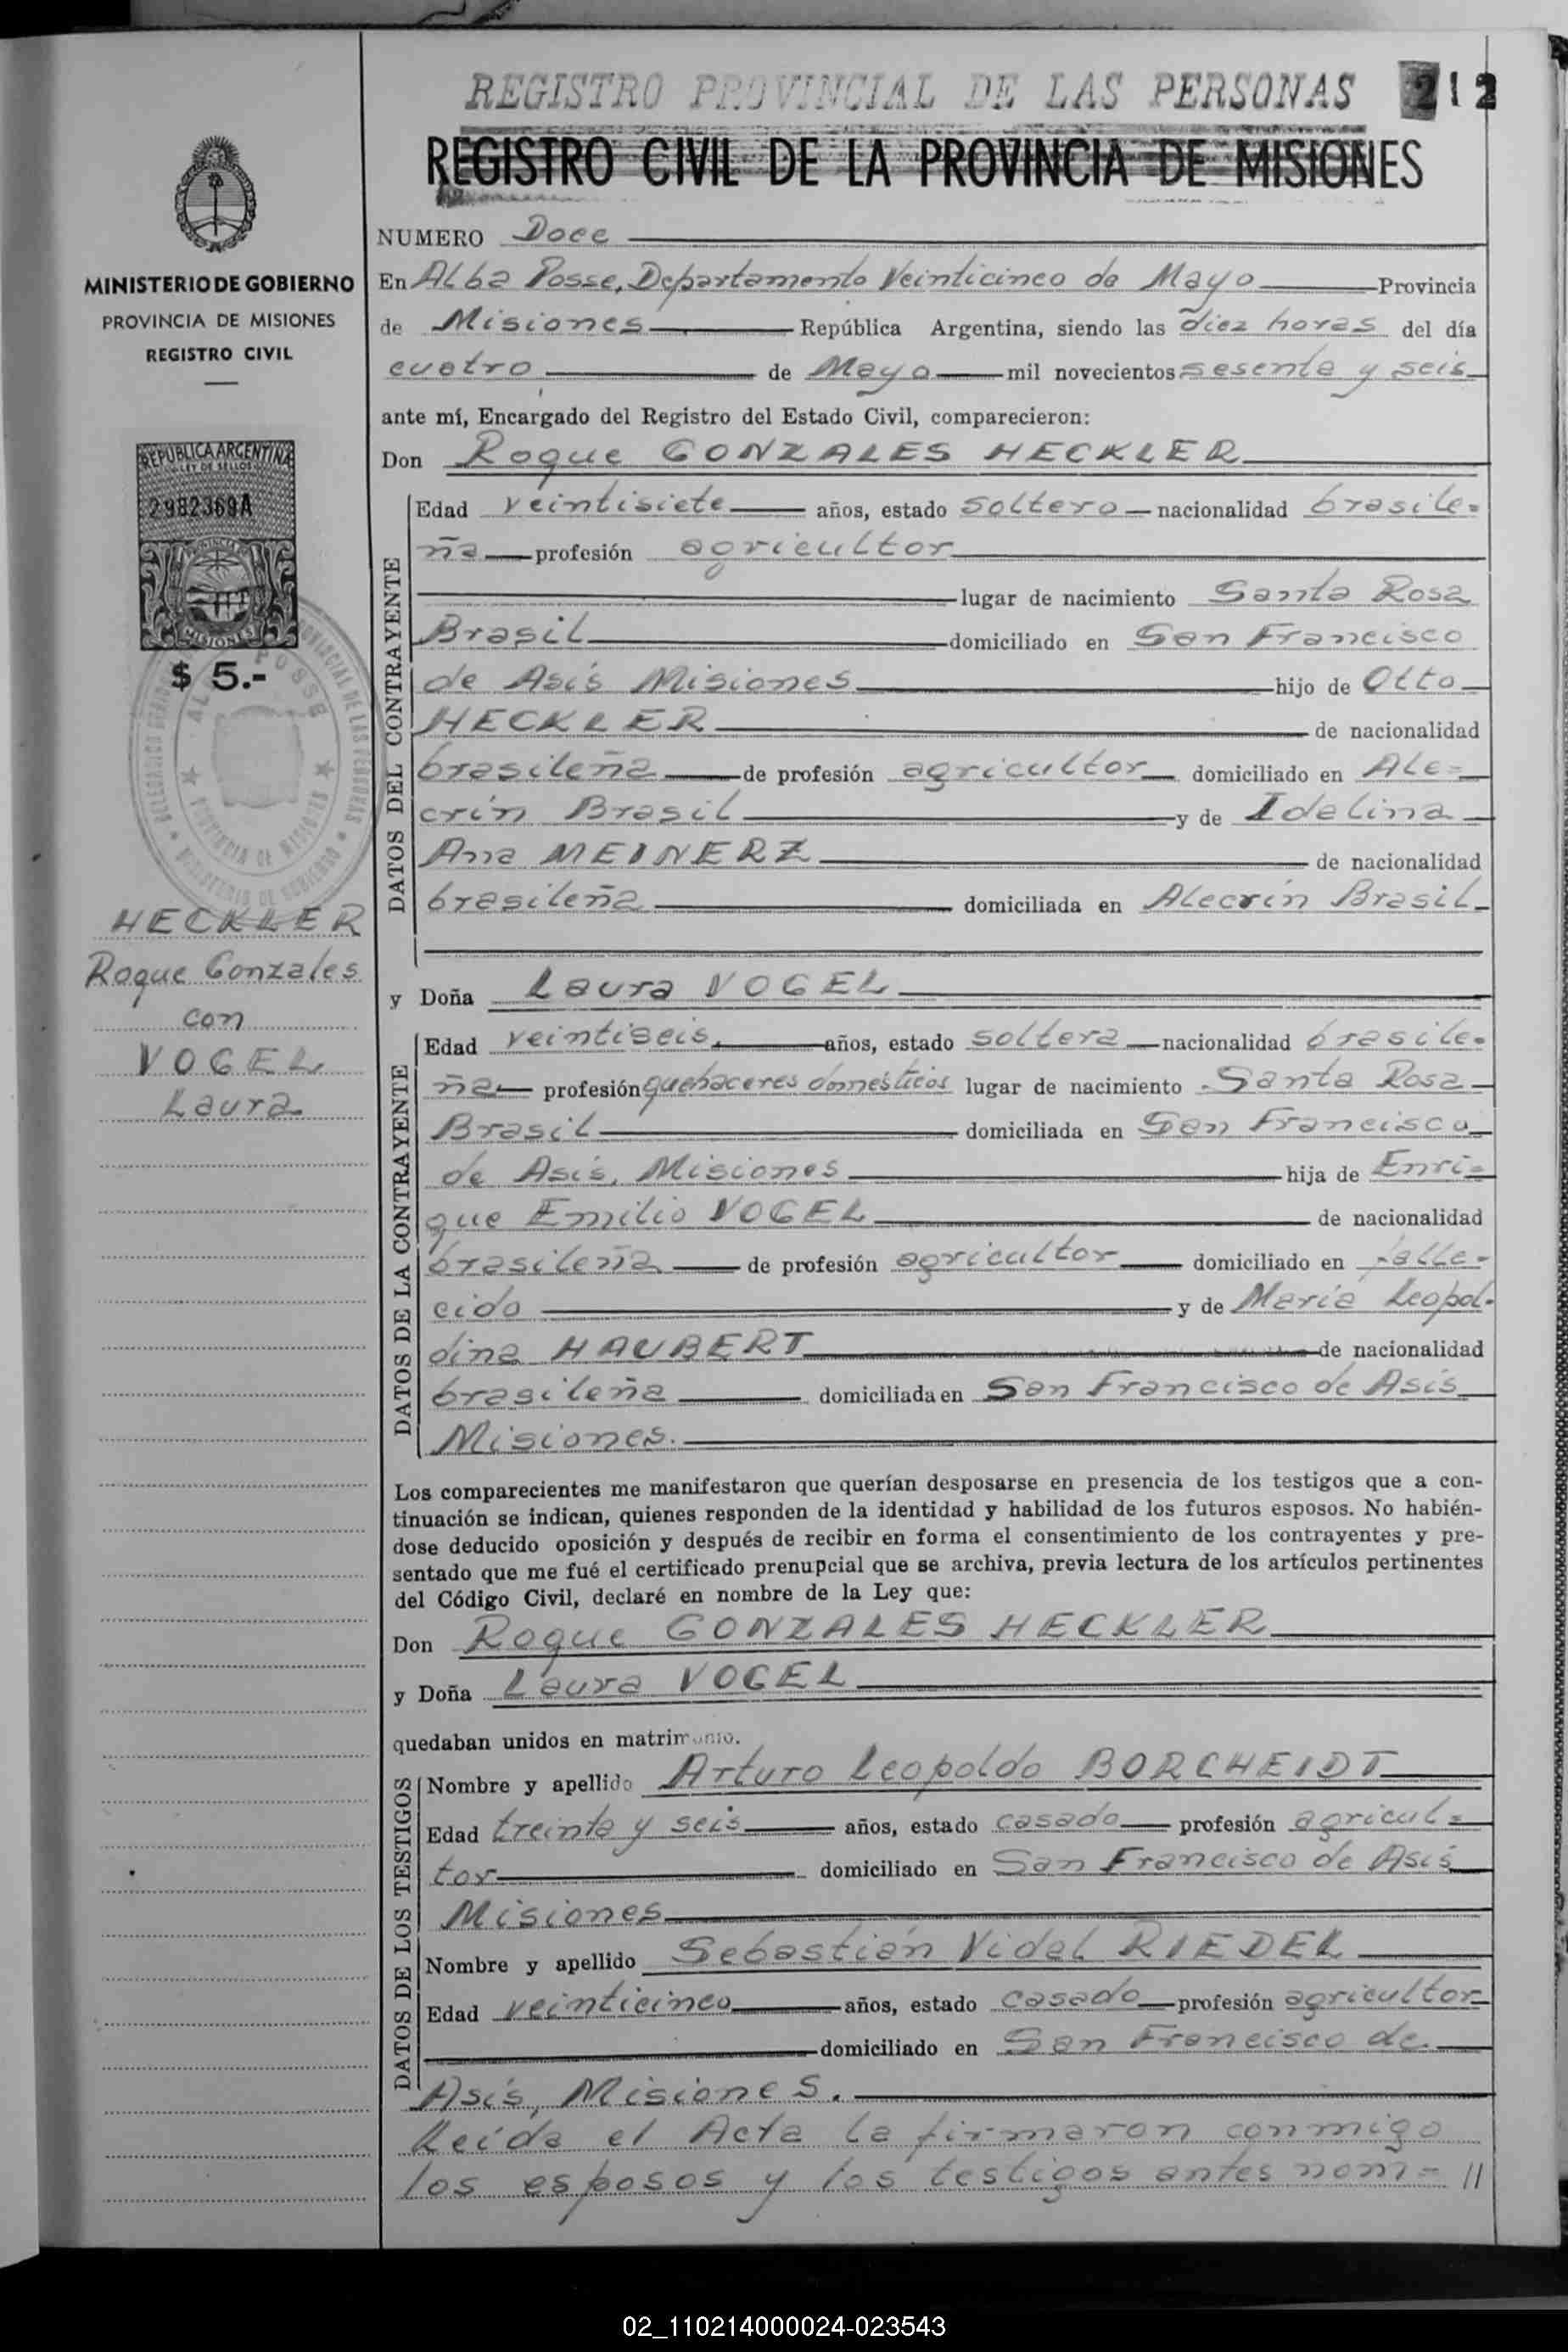 REGISTRO PROVINCIAL DE LAS PERSONAS 212
REGISTRO CIVIL DE LA PROVINCIA DE MISIONES
MINISTERIO DE GOBIERNO
PROVINCIA DE MISIONES
REGISTRO CIVIL
REPUBLICA ARGENTINA
LEY DE SELLOS
2982369A
PROVINCIA DE
MISIONES
$ 5.-
ALBA POSSE
PROVINCIA DE MISIONES
HECKLER
Roque Gonzales
con
VOGEL
Laura
NUMERO Doce
En Alba Posse, Departamento Veinticinco de Mayo Provincia
de Misiones República Argentina, siendo las diez horas del día
cuatro de Mayo mil novecientos sesenta y seis
ante mí, Encargado del Registro del Estado Civil, comparecieron:
Don Roque GONZALES HECKLER
DATOS DEL CONTRAYENTE
Edad veintisiete años, estado soltero nacionalidad brasile=
ña profesión agricultor
lugar de nacimiento Santa Rosa
Brasil domiciliado en San Francisco
de Asís Misiones hijo de Otto
HECKLER de nacionalidad
brasileña de profesión agricultor domiciliado en Ale=
crín Brasil y de Idelina
Ana MEINERZ de nacionalidad
brasileña domiciliada en Alecrín Brasil
y Doña Laura VOGEL
DATOS DE LA CONTRAYENTE
Edad veintiseis años, estado soltera nacionalidad brasile=
ña profesión quehaceres domésticos lugar de nacimiento Santa Rosa
Brasil domiciliada en San Francisco
de Asís, Misiones hija de Enri=
que Emilio VOGEL de nacionalidad
brasileña de profesión agricultor domiciliado en falle=
cido y de María Leopol=
dina HAUBERT de nacionalidad
brasileña domiciliada en San Francisco de Asís
Misiones.
Los comparecientes me manifestaron que querían desposarse en presencia de los testigos que a con-
tinuación se indican, quienes responden de la identidad y habilidad de los futuros esposos. No habién-
dose deducido oposición y después de recibir en forma el consentimiento de los contrayentes y pre-
sentado que me fué el certificado prenupcial que se archiva, previa lectura de los artículos pertinentes
del Código Civil, declaré en nombre de la Ley que:
Don Roque GONZALES HECKLER
y Doña Laura VOGEL
quedaban unidos en matrimonio.
DATOS DE LOS TESTIGOS
Nombre y apellido Arturo Leopoldo BORCHEIDT
Edad treinta y seis años, estado casado profesión agricul=
tor domiciliado en San Francisco de Asís
Misiones
Nombre y apellido Sebastián Vidal RIEDEL
Edad veinticinco años, estado casado profesión agricultor
domiciliado en San Francisco de
Asís, Misiones.
Leída el Acta la firmaron conmigo
los esposos y los testigos antes nom= //
02_110214000024-023543